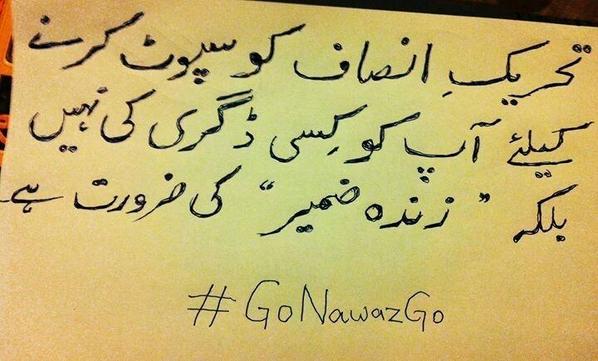 تحریکِ انصاف کو سپوٹ کرنے
کیلئے آپ کو کِسی ڈگری کی نہیں
بلکہ " زندہ ضمیر " کی ضرورت ہے
#GoNawazGo